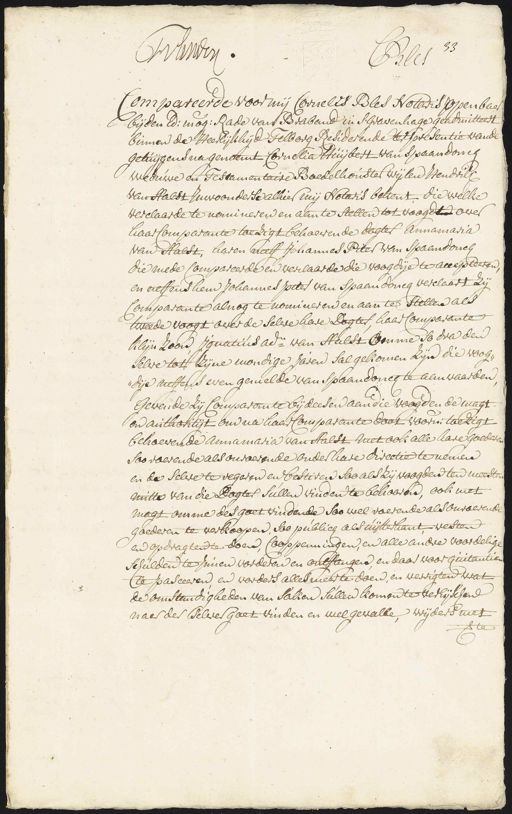 CBles 33
Compareerde voor mij Cornelis Bles Notaris openbaar
bij den Ed: mog: Rade van Braband in S'Gravenhage geadmitteert
binnen de Heerlijkhijd Telborg Residerende ter presentie van de
getuijgen nagenoemt Cornelia Huijbert van Spaandoncq
Weduwe en Testamentaire Boedelhouster wijlen Hendrik
van Halst Inwoonderse alhier mij Notaris bekent, die welke
verclaarde te nomineren en aan te stellen tot voogt over
haar Comparante behoevende Dogter Annamaria
van Halst, haren neeff Johannes Peter van Spaandoncq
die mede Compareerde en verclaarde die voogdije te accepteren,
en neffens hem Johannes peter van Spaandoncq verclaart Zij
Comparante alnog te nomineren en aan te stellen als
tweede voogt over de Selve hare Dogter, haar Comparante
Zoon Ignatius van Halst Omme so dra den
Selve tot Zijne mondige Jaren Sal gekomen Zijn die voog-
dije neffens even gemelde van Spaandoncq te aanvaarden,
Gevende Zij Comparante bij desen aan die voogden de magt
en authoritijt om na haar Comparante doot
behoevende Annamaria van Halst met ook alle hare Goederen
Soo roerende als onroerende onder hare directie te nemen
en de Selve te regeren en besteren Soo als Zij voogden ten meesten
nutte van die Dogter Sullen vinden te behooren, ook met
magt omme des goet vindende Soo wel roerende als onroerende
goederen te verkoopen, Soo publicq als uijter hant vesten
en opdragten te doen, Cooppenningen, en alle andre voordelige
Schulden te Innen vorderen en ontfangen, en daar voor quitantien
te passeeren, en vorders alles meer te doen, en verrigten wat
de omstandigheden van Saken Sullen komen te verEijsschen
naer des Selves goet vinden en welgevalle, wijders met